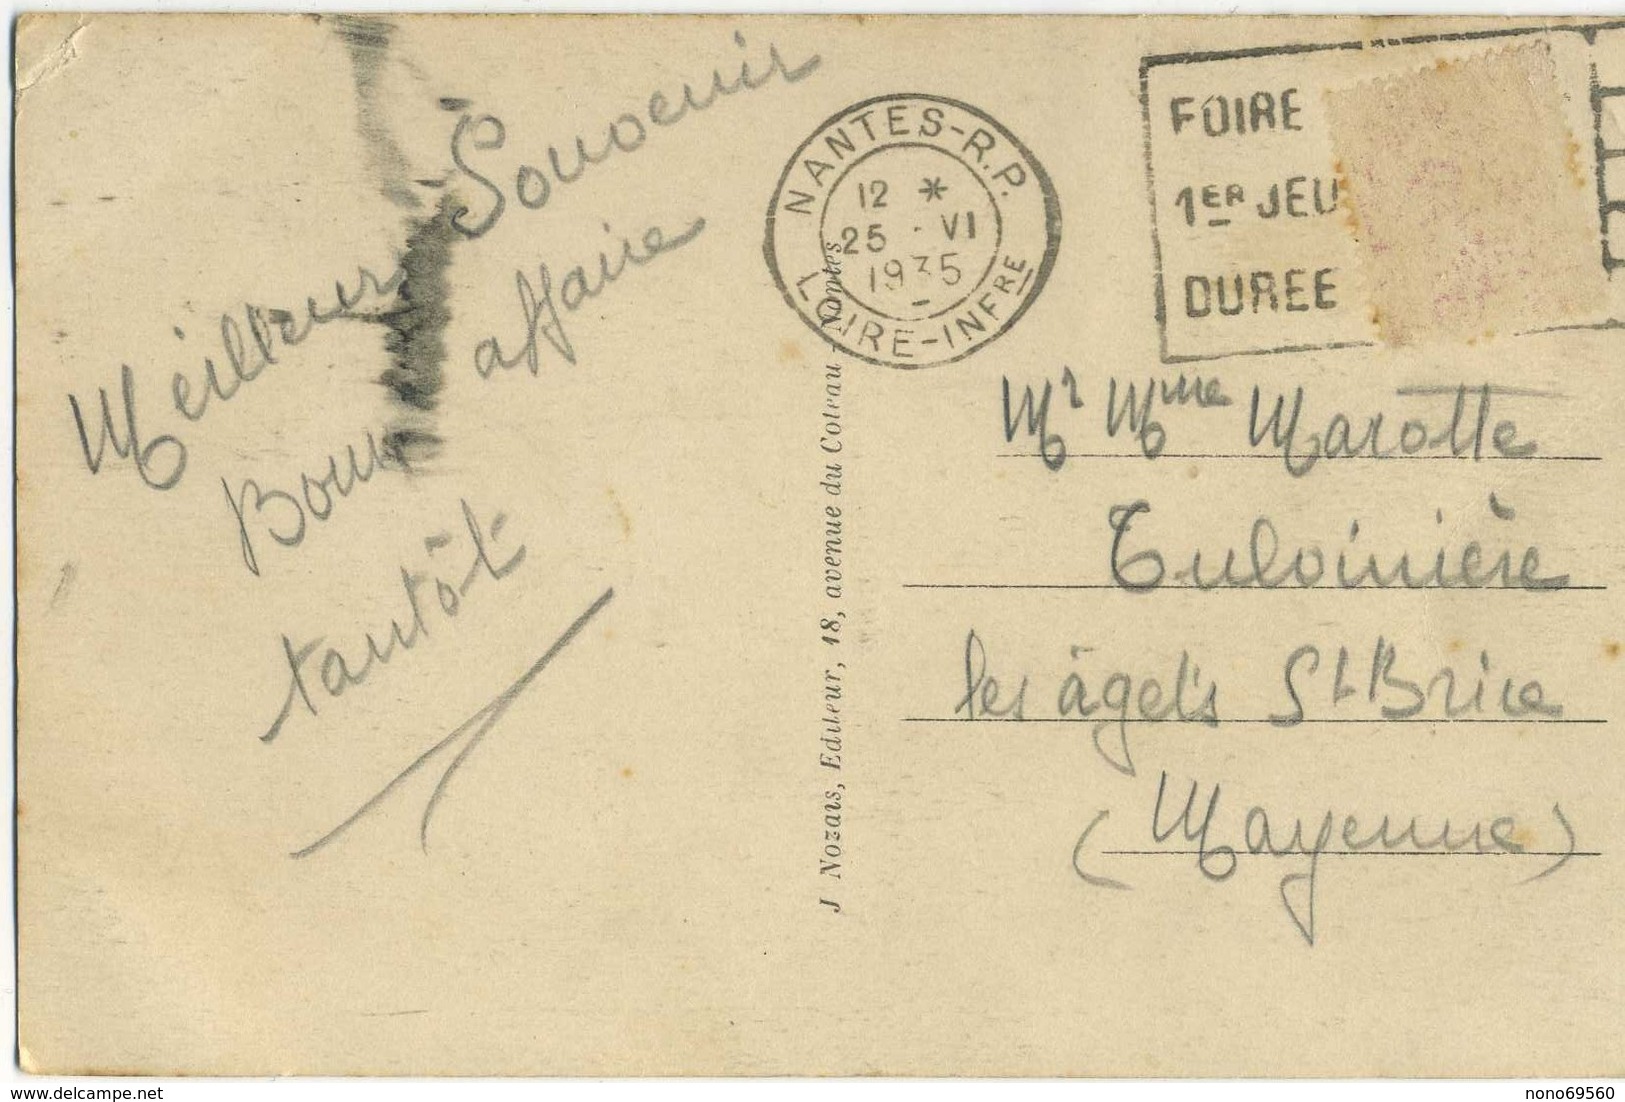 Meilleur Souvenir
Bonne affaire
tantôt
NANTES-R.P.
12 *
25 · VI
1935
LOIRE-INFRE
FOIRE
1ER JEU
DUREE
J Nozais, Editeur, 18, avenue du Coteau - Nantes
Mr Mme Marotte
Tuloinière
les âgets St Brice
(Mayenne)
nono69560